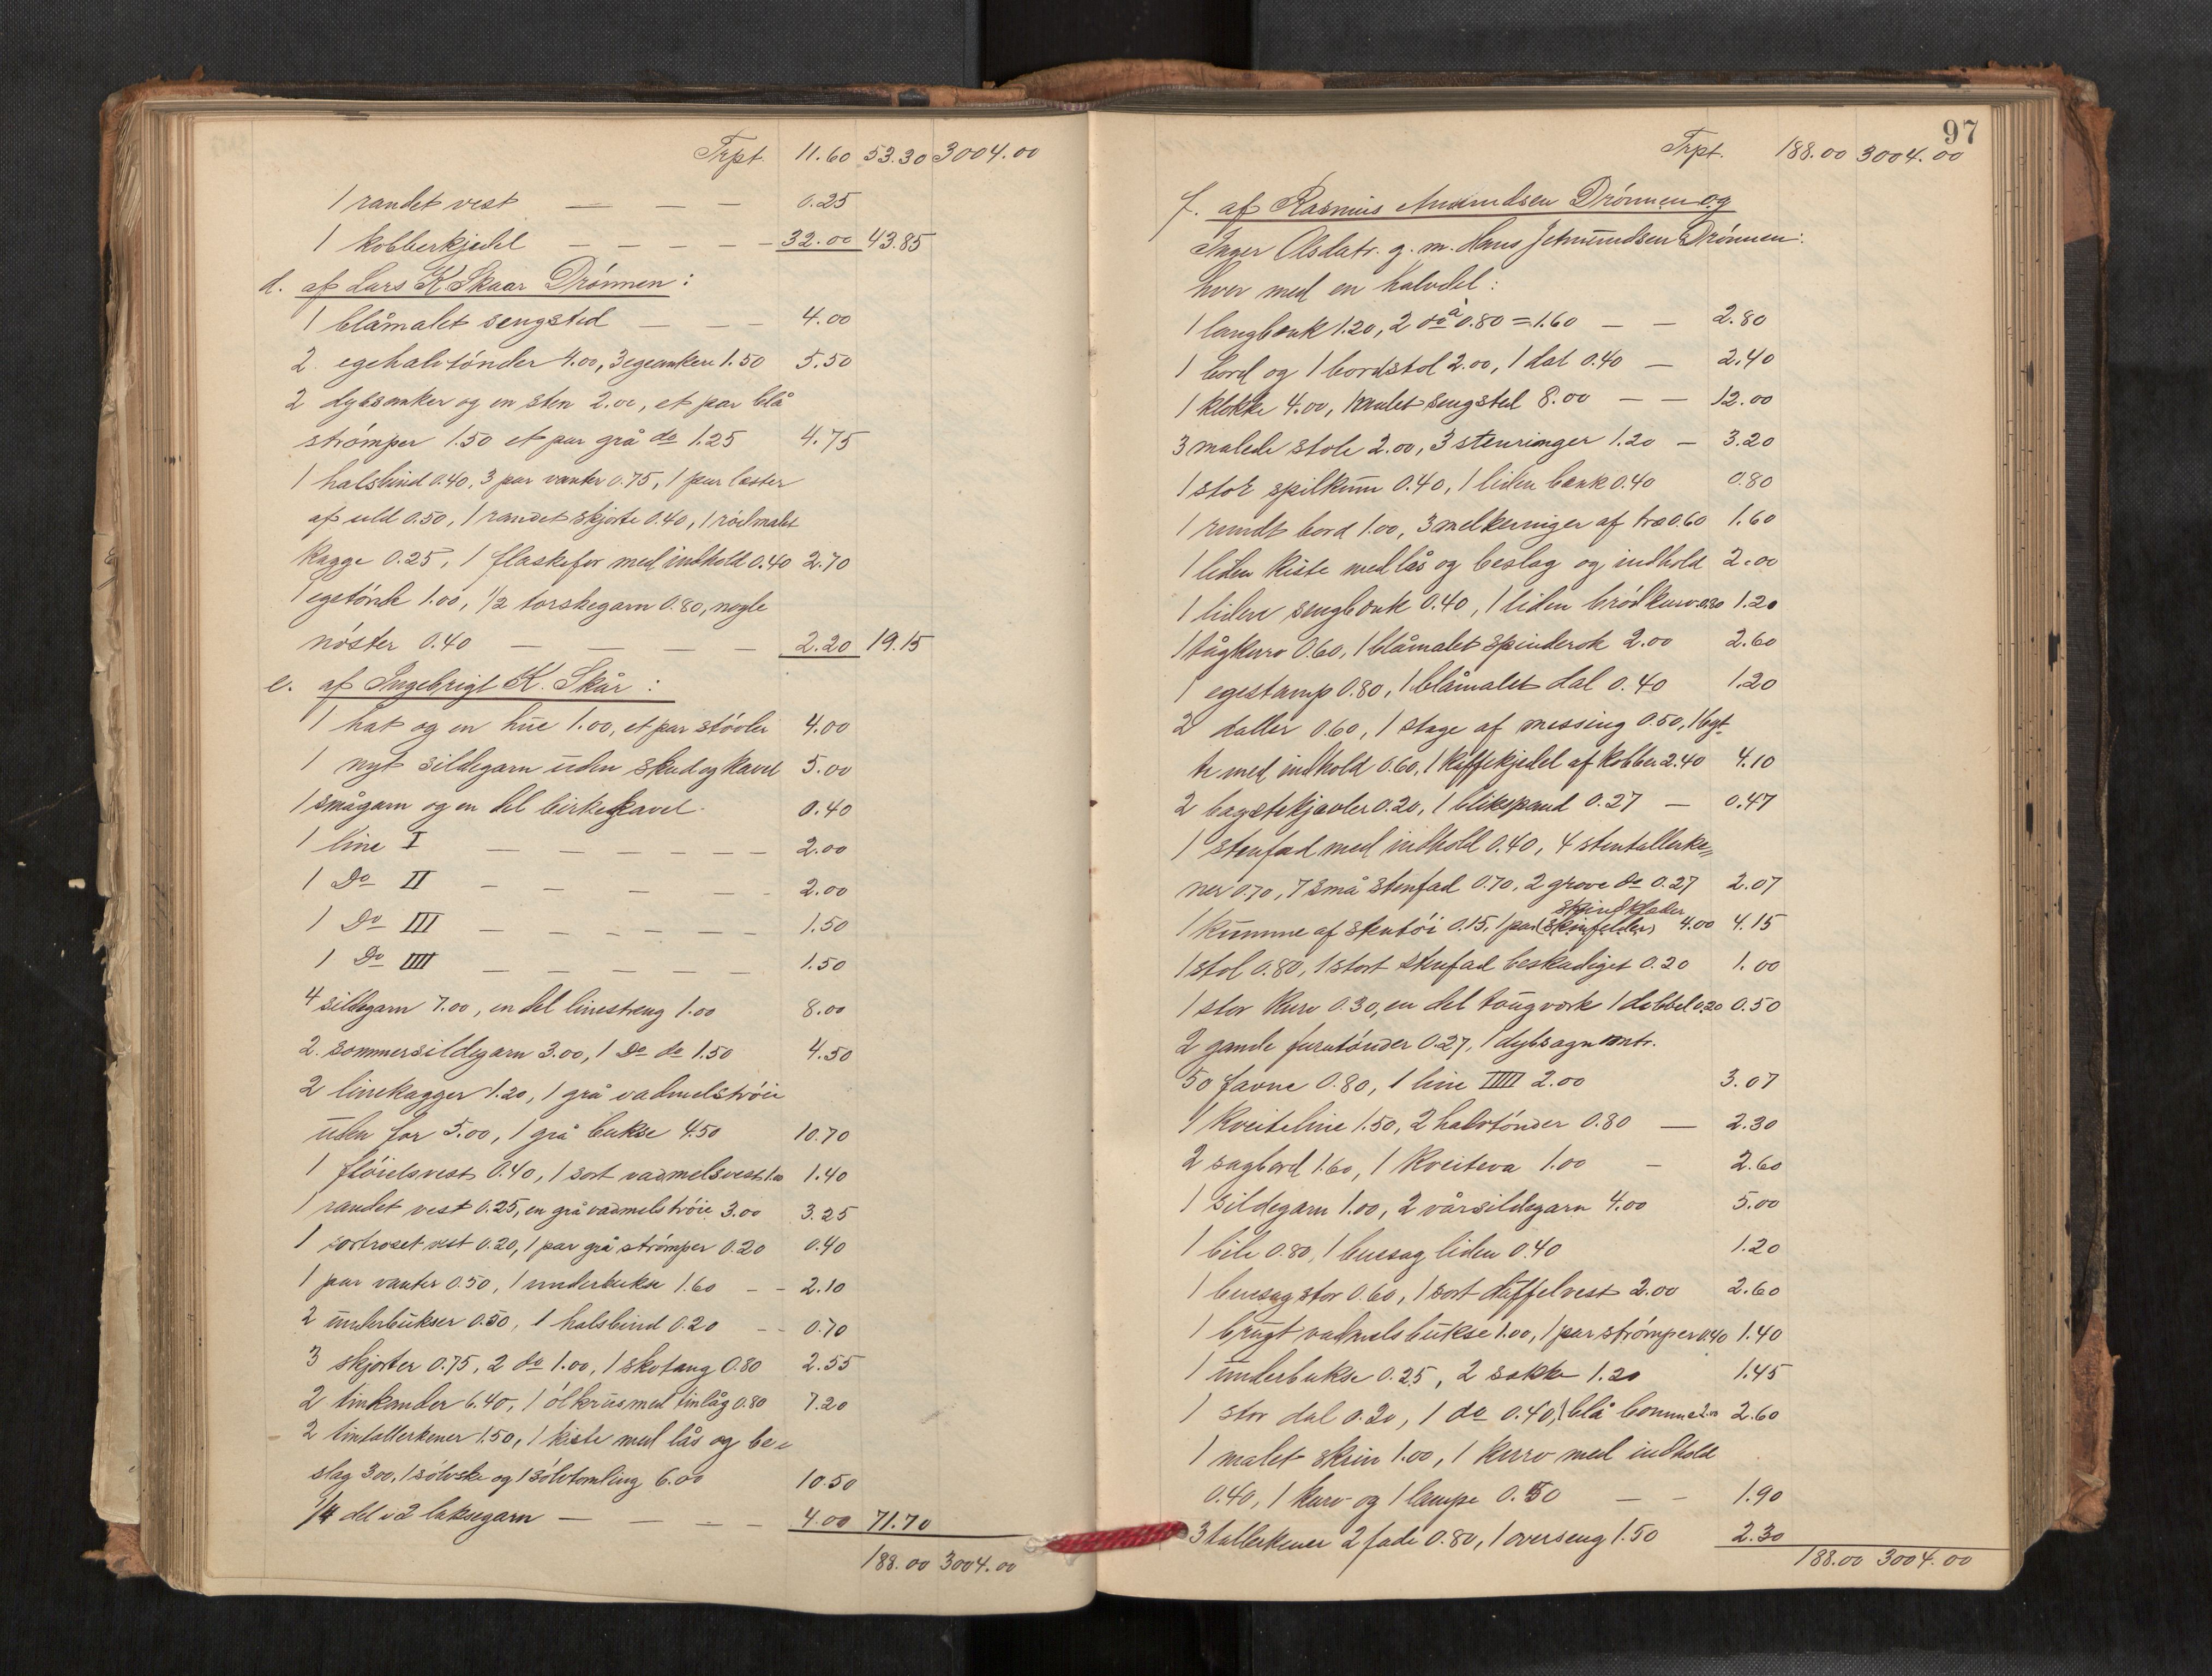 Trpt. 11.60 53.30 3004.00
1 randet vest — — — 0.25
1 kobberkjedel — — — — — 32.00 43.85
d. af Lars K Skaar Drönnen:
1 blåmalet sengsted — — — 4.00
2 egehalvtönder 4.00, 3 egeankere 1.50 5.50
2 dybsanker og en sten 2.00, et par blå
strömper 1.50 et par grå do 1.25 4.75
1 halsbind 0.40, 3 par vanter 0.75, 1 par læster
af uld 0.50, 1 randet skjorte 0.40, 1 rödmalet
Kagge 0.25, 1 flaskefor med indhold 0.40 2.70
1 egetönde 1.00, 1/2 torskegarn 0.80, nogle
nöster 0.40 — — — — 2.20 19.15
e. af Ingebrigt K. Skår:
1 hat og en hue 1.00, et par stövler 4.00
1 nyt sildegarn uden skud og kavel 5.00
1 smågarn og en del birkekavel 0.40
1 line I — — — — — — 2.00
1 Do II — — — — — 2.00
1 Do III — — — — — — 1.50
1 Do IIII — — — — — — 1.50
4 sildegarn 7.00, en del linestreng 1.00 8.00
2. sommersildegarn 3.00, 1 Do do 1.50 4.50
2 linekagger 1.20, 1 grå vadmelströie
uden for 5.00, 1 grå bukse 4.50 10.70
1 flöielsvest 0.40, 1 sort vadmelsvest 1.00 1.40
1 randet vest 0.25, en grå vadmelströie 3.00 3.25
1 sortroset vest 0.20, 1 par grå strömper 0.20 0.40
1 par vanter 0.50, 1 underbukse 1.60 — — 2.10
2 underbukser 0.50, 1 halsbind 0.20 — — 0.70
3 skjorter 0.75, 2 do 1.00, 1 skotang 0.80 2.55
2 tinkander 6.40, 1 ölkrus med tinlåg 0.80 7.20
2 tintallerkener 1.50, 1 kiste med lås og be-
slag 3.00, 1 sölvske og 1 sölvtomling 6.00 10.50
1/4 del i 2 laksegarn — — — — 4.00 71.70
188.00 3004.00
97
Trpt. 188.00 3004.00
f. af Rasmus Amundsen Drönnen og
Inger Olsdatr. g. m. Hans Jetmundsen Drönnen:
hver med en halvdel:
1 langbænk 1.20, 2 do à 0.80 = 1.60 — — 2.80
1 bord og 1 bordstol 2.00, 1 dal 0.40 — 2.40
1 klokke 4.00, 1 malet sengsted 8.00 — — 12.00
3 malede stole 2.00, 3 stenringer 1.20 — 3.20
1 stor spilkum 0.40, 1 liden bænk 0.40 0.80
1 rundt bord 1.00, 3 melkeringer af træ 0.60 1.60
1 liden kiste med lås og beslag og indhold 2.00
1 liden sengbænk 0.40, 1 liden brödkurv 0.80 1.20
1 tågkurv 0.60, 1 blåmalet spinderok 2.00 2.60
1 egestamp 0.80, 1 blåmalet dal 0.40 1.20
2 daller 0.60, 1 stage af messing 0.50, 1 byt-
te med indhold 0.60, 1 kaffekjedel af kobber 2.40 4.10
2 bagstekjævler 0.20, 1 blikspand 0.27 — 0.47
1 stenfad med indhold 0.40, 4 stentallerke-
ner 0.70, 7 små stenfad 0.70, 2 grove do 0.27 2.07
skindklæder
1 kumme af stentöi 0.15, 1 par (skinfelder) 4.00 4.15
1 stol 0.80, 1 stort stenfad beskadiget 0.20 1.00
1 stor kurv 0.30, en del tougværk 1 dobbel 0.20 0.50
2 gamle furutönder 0.27, 1 dybsagn omtr.
50 favne 0.80, 1 line IIIII 2.00 3.07
1 kveiteline 1.50, 2 halvtönder 0.80 — 2.30
2 sagbord 1.60, 1 kveiteva 1.00 — 2.60
1 sildegarn 1.00, 2 vårsildegarn 4.00 5.00
1 bile 0.80, 1 buesag liden 0.40 1.20
1 buesag stor 0.60, 1 sort duffelvest 2.00 2.60
1 brugt vadmelsbukse 1.00, 1 par strömper 0.40 1.40
1 underbukse 0.25, 2 sække 1.20 1.45
1 stor dal 0.20, 1 do 0.40, 1 blå bomme 2.00 2.60
1 malet skrin 1.00, 1 kurv med indhold
0.40, 1 kurv og 1 lampe 0.50 — — 1.90
3 tallerkener 2 fade 0.80, 1 overseng 1.50 2.30
188.00 3004.00